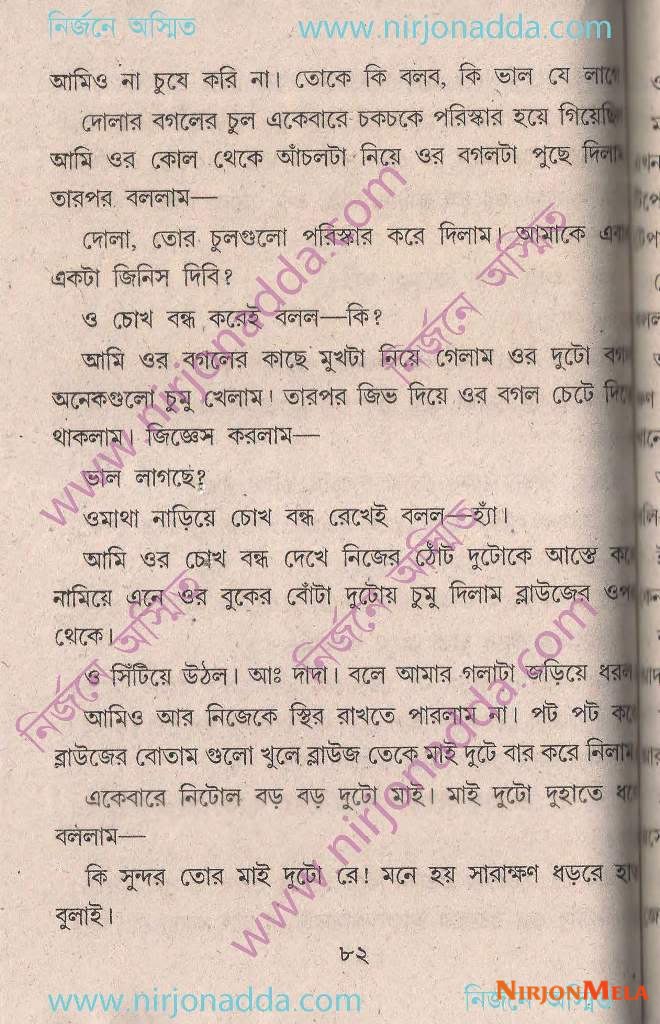 নির্জনে অস্মিত www.nirjonadda.com
আমিও না চুষে করি না। তোকে কি বলব, কি ভাল যে
দোলার বগলের চুল একেবারে চকচকে পরিস্কার হয়ে
আমি ওর কোল থেকে আঁচলটা নিয়ে ওর বগলটা পুছে
তারপর বললাম—
দোলা, তোর চুলগুলো পরিস্কার করে দিলাম। আমাকে
একটা জিনিস দিবি?
ও চোখ বন্ধ করেই বলল—কি?
আমি ওর বগলের কাছে মুখটা নিয়ে গেলাম ওর দুটো
অনেকগুলো চুমু খেলাম! তারপর জিভ দিয়ে ওর বগল চেটে
থাকলাম। জিজ্ঞেস করলাম—
ভাল লাগছে?
ওমাথা নাড়িয়ে চোখ বন্ধ রেখেই বলল—হ্যাঁ।
আমি ওর চোখ বন্ধ দেখে নিজের ঠোঁট দুটোকে আস্তে
নামিয়ে এনে ওর বুকের বোঁটা দুটোয় চুমু দিলাম ব্লাউজের
থেকে।
ও সিঁটিয়ে উঠল। আঃ দাদা। বলে আমার গলাটা জড়িয়ে
আমিও আর নিজেকে স্থির রাখতে পারলাম না। পট পট
ব্লাউজের বোতাম গুলো খুলে ব্লাউজ তেকে মাই দুটে বার করে নিলাম
একেবারে নিটোল বড় বড় দুটো মাই। মাই দুটো দুহাতে
বললাম—
কি সুন্দর তোর মাই দুটো রে! মনে হয় সারাক্ষণ ধড়রে
বুলাই।
৮২
NIRJONMELA
www.nirjonadda.com নির্জনে অস্মিত
www.nirjonadda.com
নির্জনে অস্মিত
নির্জনে অস্মিত
নির্জনে অস্মিত
www.nirjonadda.com